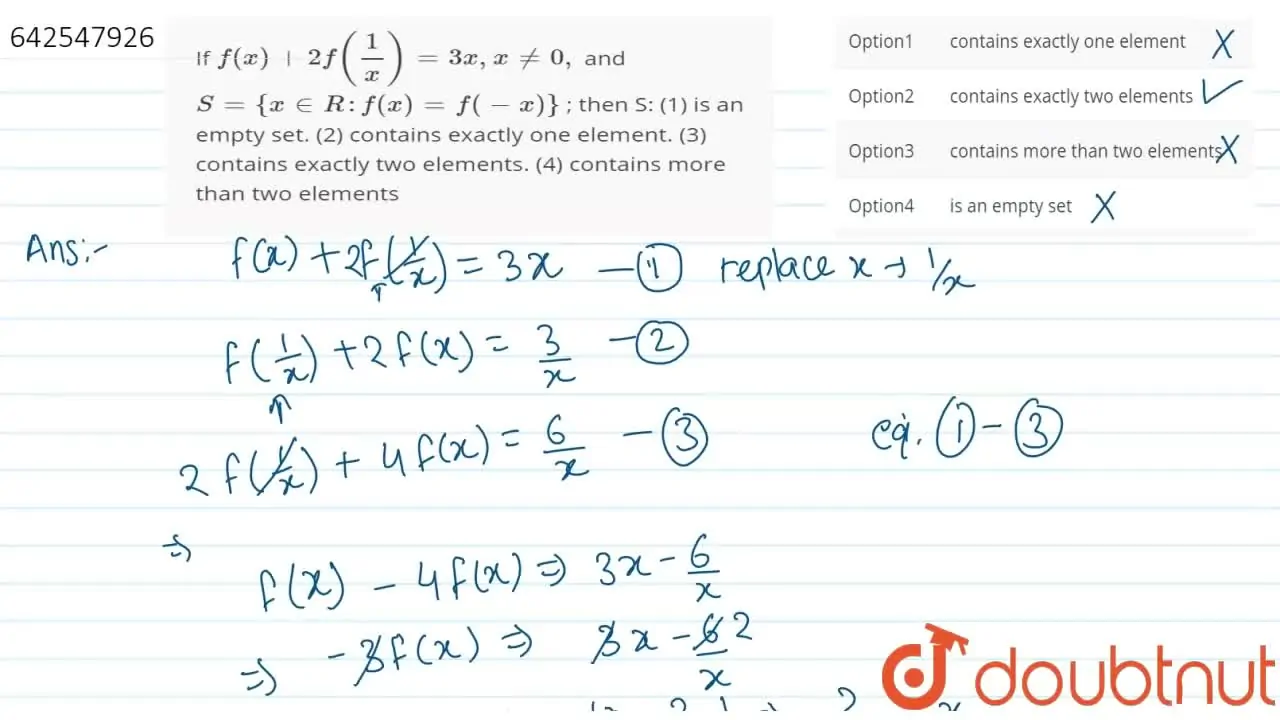 642547926
If f(x) | 2f(1/x) = 3x, x ≠ 0, and
S = {x ∈ R : f(x) = f( − x)} ; then S: (1) is an
empty set. (2) contains exactly one element. (3)
contains exactly two elements. (4) contains more
than two elements
Option1 contains exactly one element X
Option2 contains exactly two elements ✓
Option3 contains more than two elements X
Option4 is an empty set X
Ans:- f(x) + 2f(1/x) = 3x — ① replace x → 1/x
f(1/x) + 2f(x) = 3/x — ②
2f(1/x) + 4f(x) = 6/x — ③ eq. ① - ③
⇒ f(x) - 4f(x) ⇒ 3x - 6/x
⇒ -3f(x) ⇒ 3x - 6/x 2
doubtnut